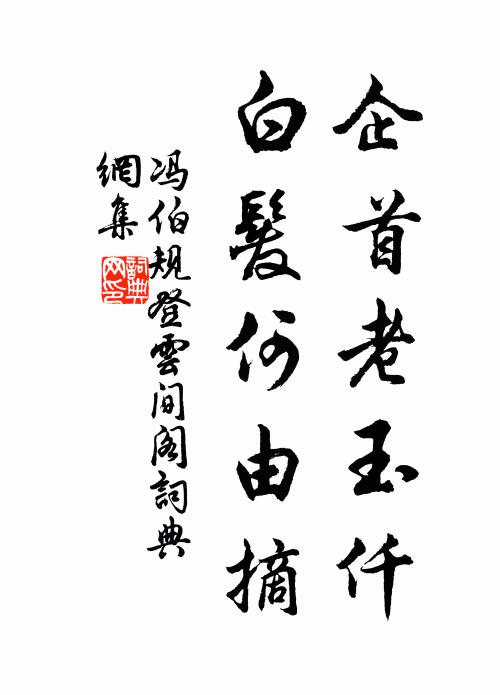 企首老玉仟
白髮何由摘
冯伯规登雲间阁詞典
網集
詞典網印